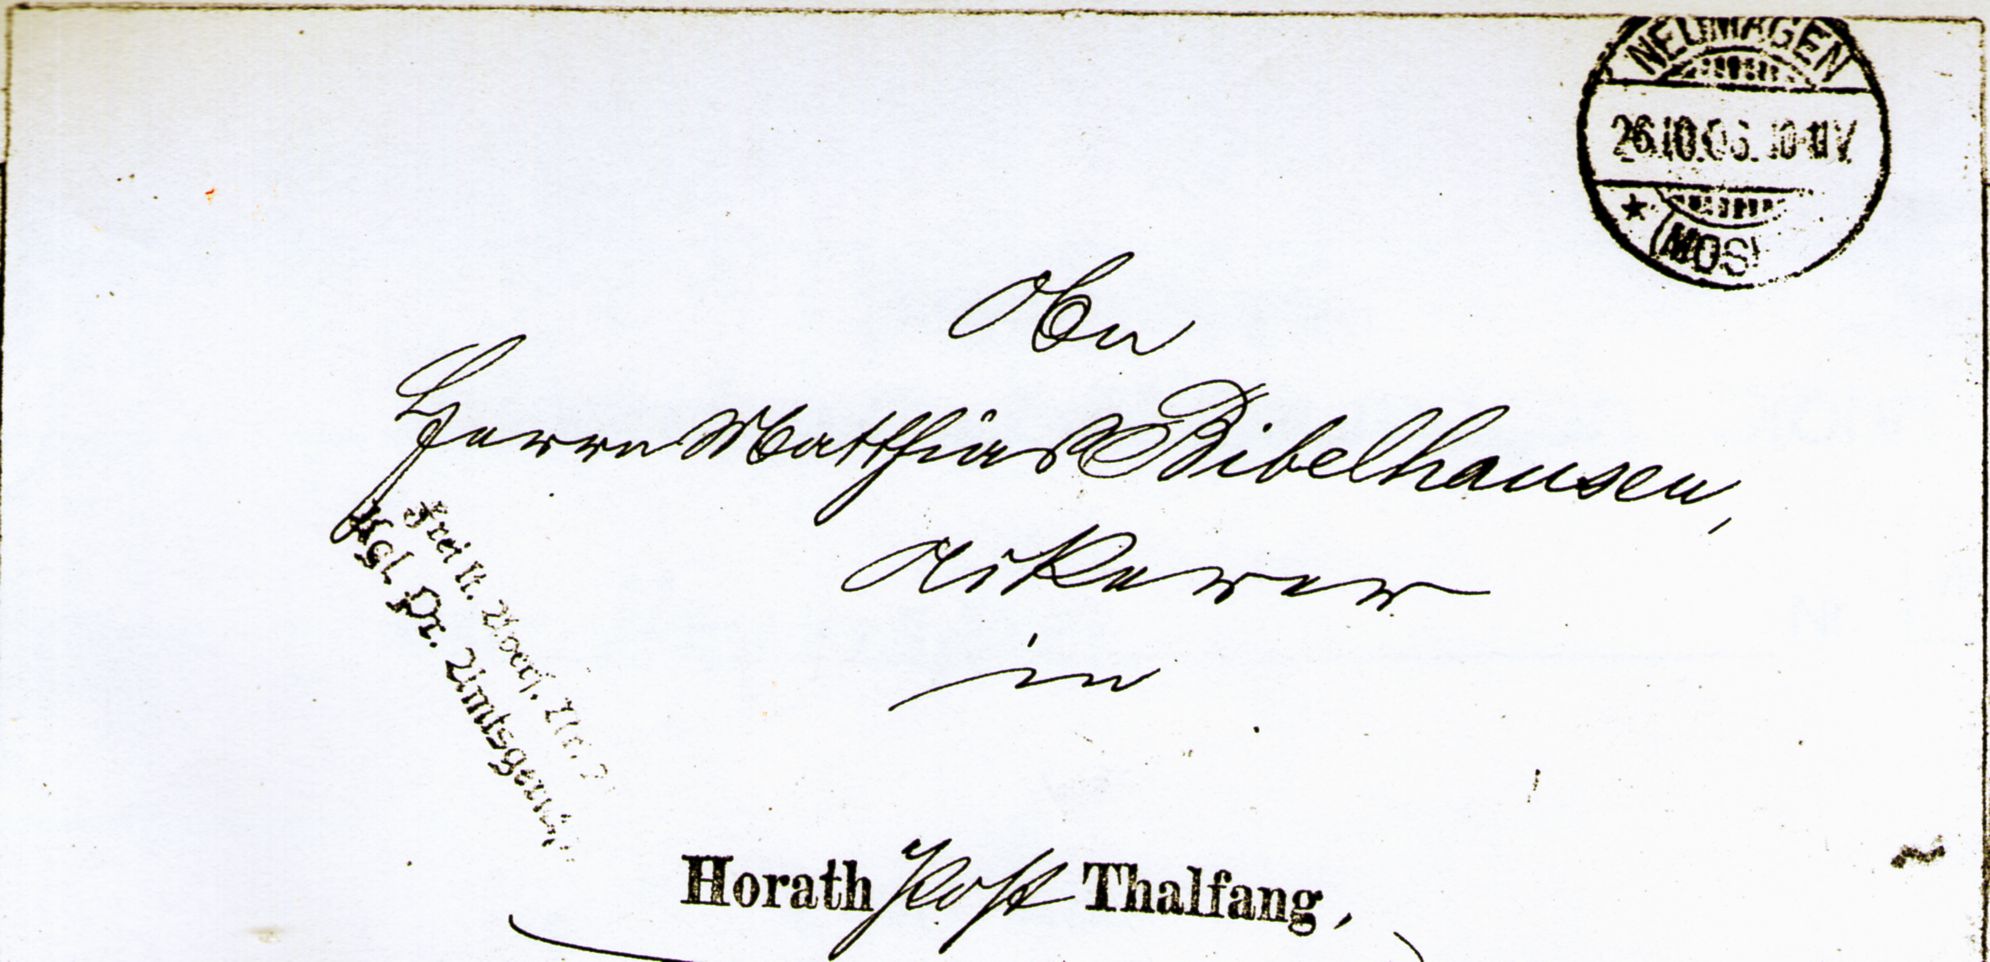 NEUMAGEN
26.10.06. 10-11V.
(MOS
An
Herrn Matthias Bibelhausen,
Ackerer
in
Frei lt. Avers. Nr. 2
Kgl. Pr. Amtsgericht
Horath Post Thalfang,